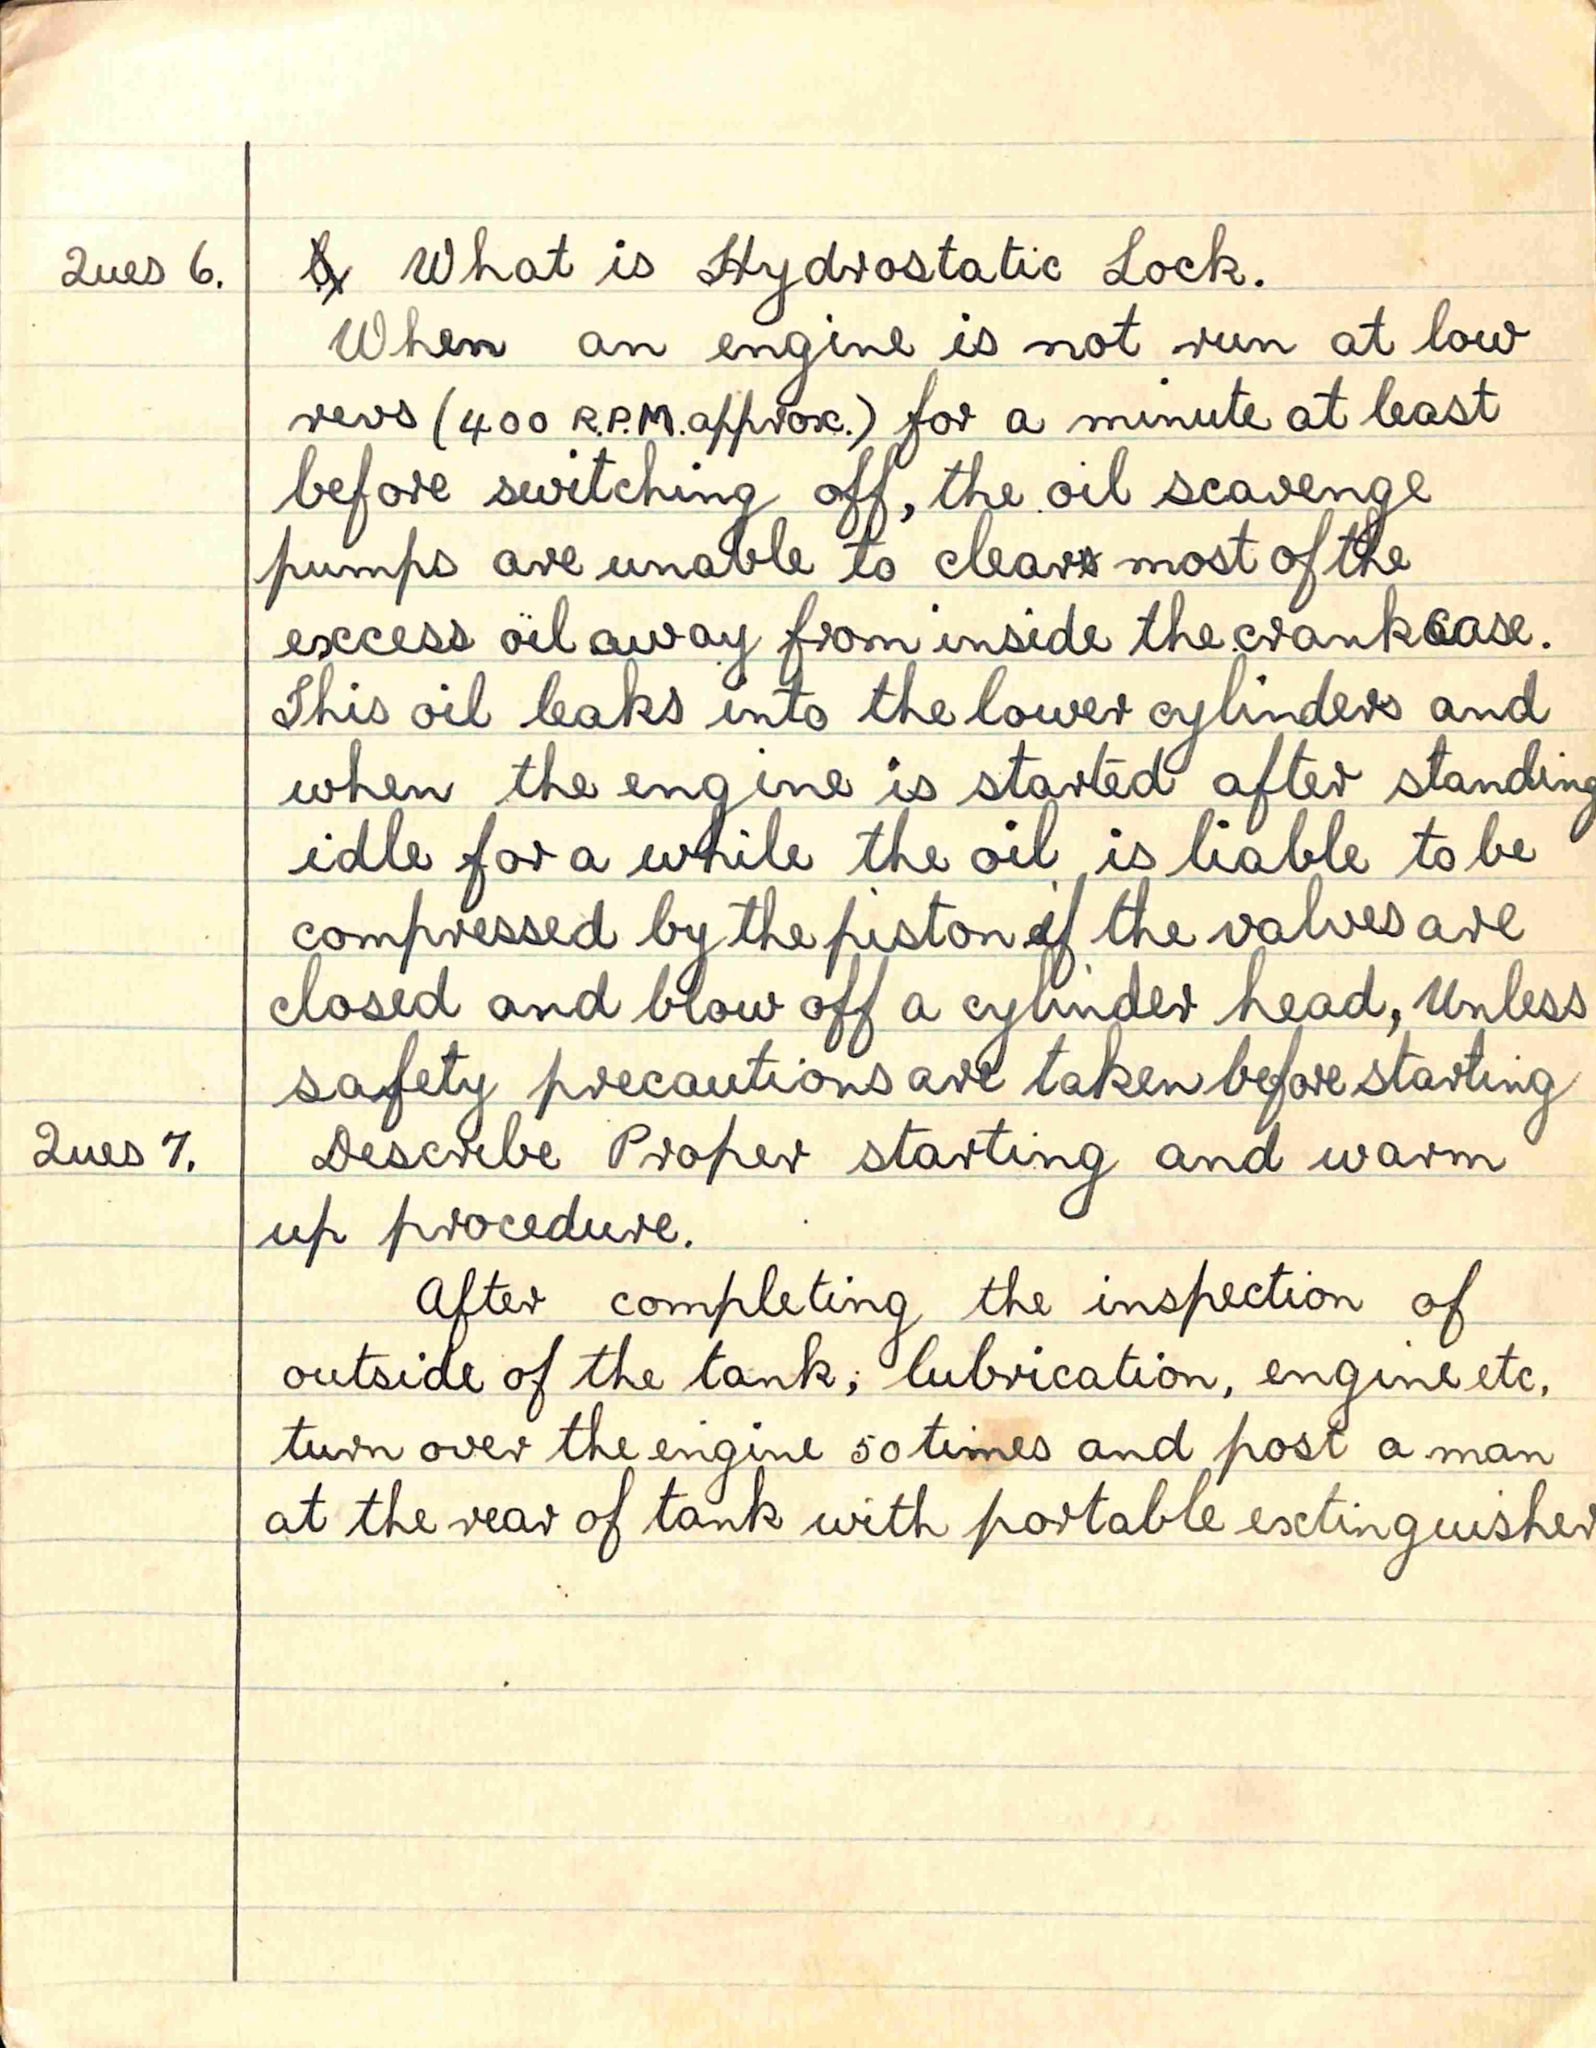 Ques 6. What is Hydrostatic Lock.
When an engine is not run at low
revs (400 R.P.M. approx.) for a minute at least
before switching off, the oil scavenge
pumps are unable to clear most of the
excess oil away from inside the crankcase.
This oil leaks into the lower cylinders and
when the engine is started after standing
idle for a while the oil is liable to be
compressed by the piston if the valves are
closed and blow off a cylinder head, Unless
safety precautions are taken before starting
Ques 7. Describe Proper starting and warm
up procedure.
After completing the inspection of
outside of the tank, lubrication, engine etc.
turn over the engine 50 times and post a man
at the rear of tank with portable extinguisher